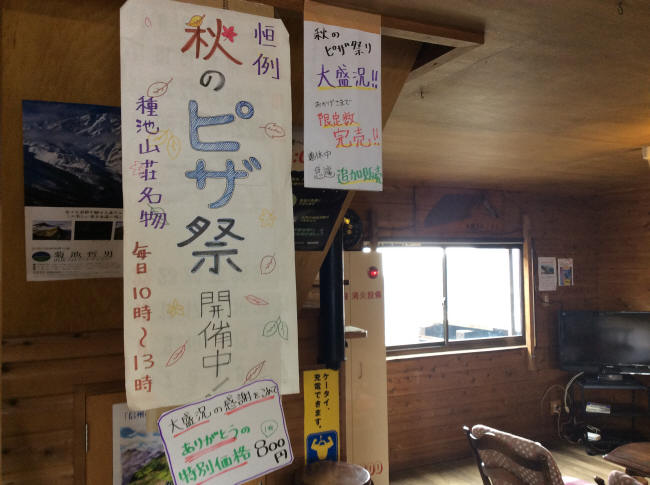 恒例
秋の
ピザ祭
開備中!
種池山荘名物
毎日10時~13時
秋の
ピザ祭り
大盛況!!
おかげさまで
限定数
完売!!
連休中
急遽
追加販売
大盛況の感謝を込めて
ありがとうの
特別価格
1枚
800円
菊池哲男
消火設備
ケータイ、
充電できます。